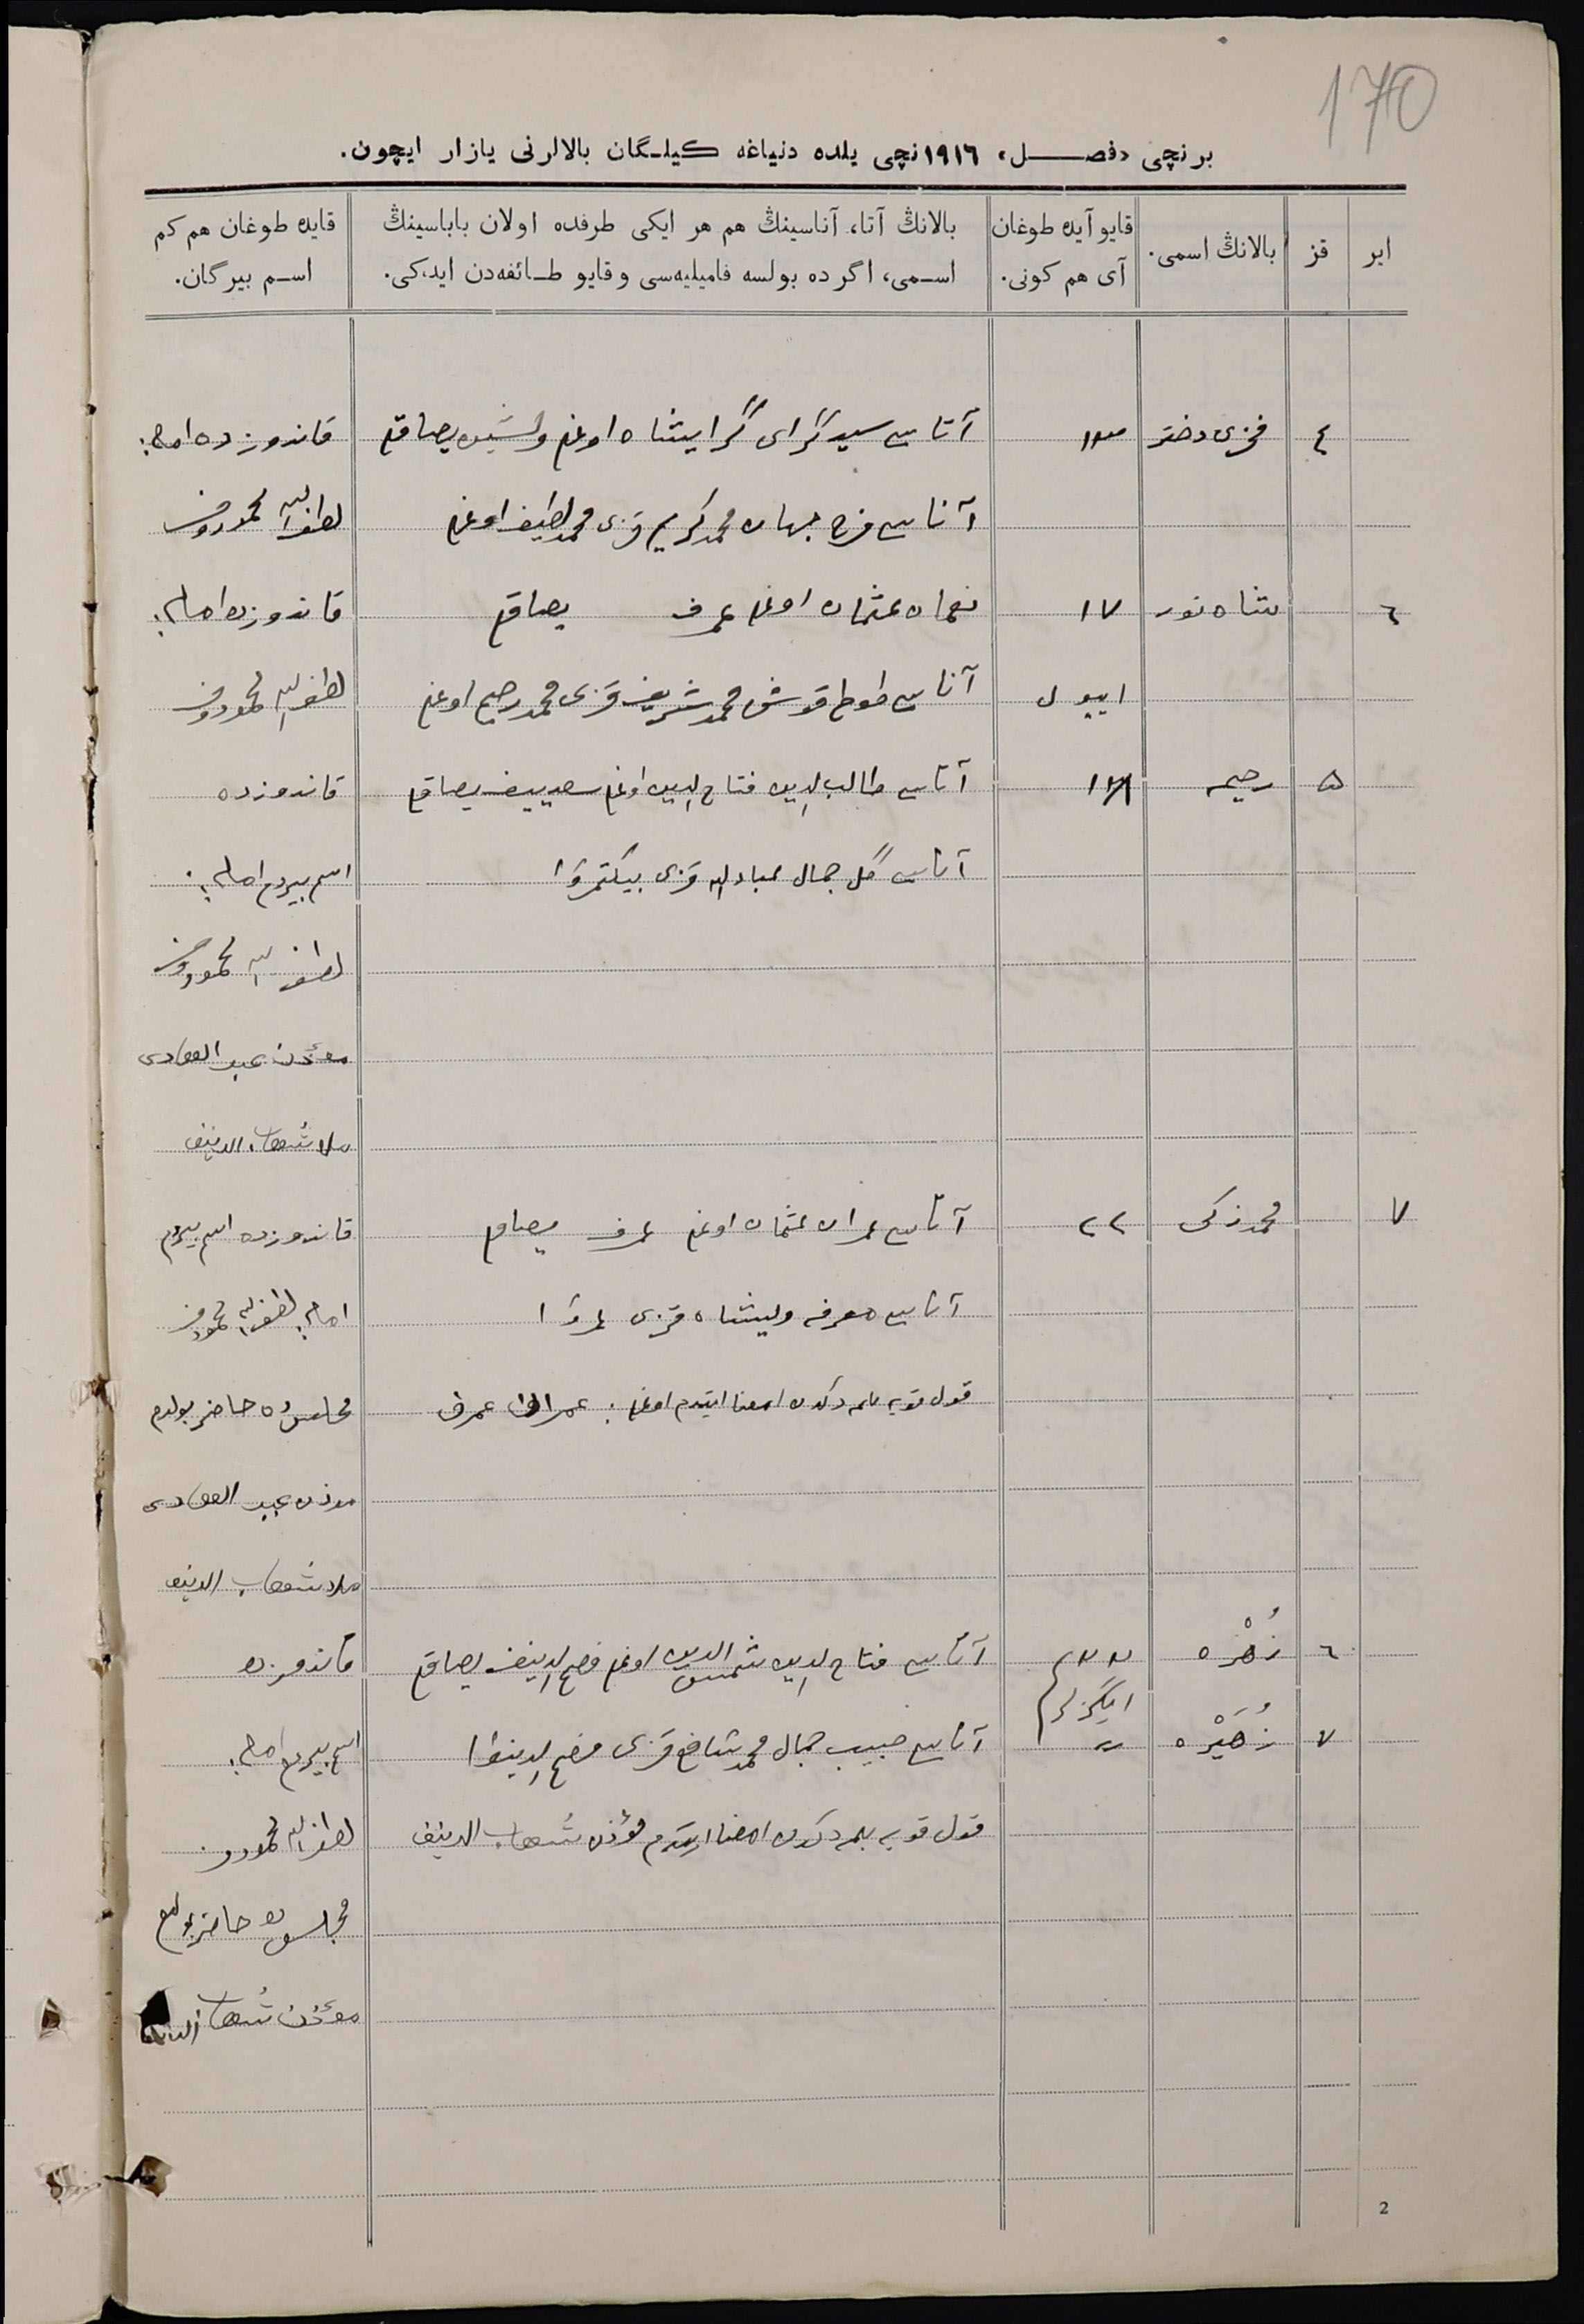 170
برنچی «فصل» ١٩١٦نچی یلده دنیاغه كیلـگان بالالرنی یازار ایچون.
ایر
قز
بالانڭ اسمی.
قایو آیده طوغان آی هم كونی.
بالانڭ آتا، آناسینڭ هم هر ایكی طرفده اولان باباسینڭ اسـمی، اگر ده بولسه فامیلیه‌سی و قایو طـائفه‌دن ایدیكی.
قایده طوغان هم كم اسـم بیرگان.
٤ فخری دختر ١٣ آتاسی سیدگرای گرایشاه اوغلی یصاقلی قاندوزده امام:
آناسی فرح جهان محمدكریم قزی محمدلطیف اوغلی لطف الله محمودوف
٦ شاه نور ١٧ نعمان عثمان اوغلی عمرف یصاقلی قاندوزده امام:
اییول آناسی طوطی قوش محمدشریف قزی محمدرحیم اوغلی لطف الله محمودوف
٥ رحیمه آتاسی طالب الدین فتاح الدین اوغلی سعیدیف یصاقلی قاندوزده
آناسی گل جمال عبادالله قزی بیكتمروا اسم بیردم امام:
لطف الله محمودوف
مؤذن عبد الهادی
ملا شهاب الدینف
٧ محمدزكی ٢٢ آتاسی عمران عثمان اوغلی عمرف یصاقلی قاندوزده اسم بیردم
آناسی معرفه ولیشاه قزی عمروا امام لطف الله محمودوف
قول قویه بلمه‌دكدن امضا ایتدم اوغلی: عمران عمرف مجلسده حاضر بولدم
مؤذن عبد الهادی
ملا شهاب الدینف
٦ زُهْره ٢٣ آتاسی فتاح الدین شمس الدین اوغلی فصیح الدینف یصاقلی قاندوزده
ایگزلر
٧ زُهَیْره آناسی حبیب جمال محمدشافع قزی فصیح الدینوا اسم بیردم امام:
قول قویه بلمه‌دكدن امضا ایتدم مؤذن شهاب الدینف لطف الله محمودوف
مجلسده حاضر بولدم
مؤذن شهاب
2